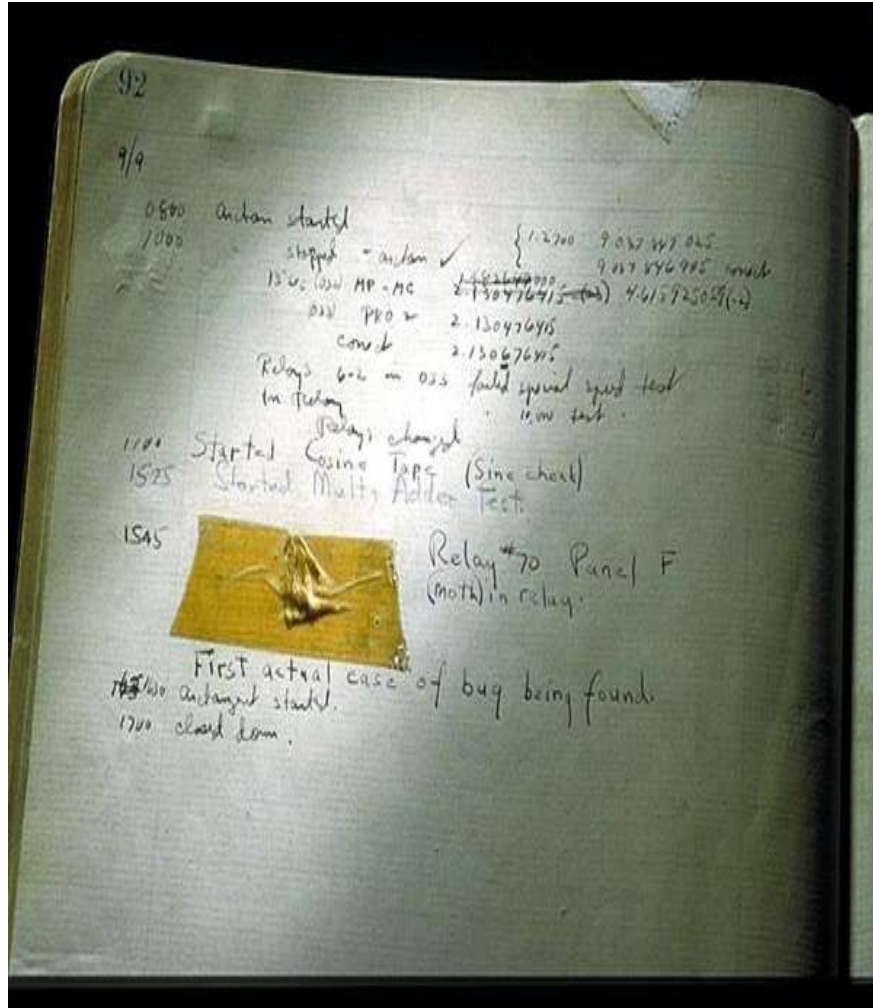 92
9/9
0800 antan started
1000 stopped - antan ✓ { 1.2700 9.037 847 025
9.037 846 995 correct
13"uc (032) MP - MC 2.130476415 (-3) 4.615925059(-2)
(033) PRO 2 2.130476415
correct 2.130676415
Relays 6-2 in 033 failed special speed test
in relay " 10.000 test .
Relays changed
1100 Started Cosine Tape (Sine check)
1525 Started Mult + Adder Test.
1545 Relay #70 Panel F
(moth) in relay.
First actual case of bug being found.
1630 antangent started.
1700 closed down.